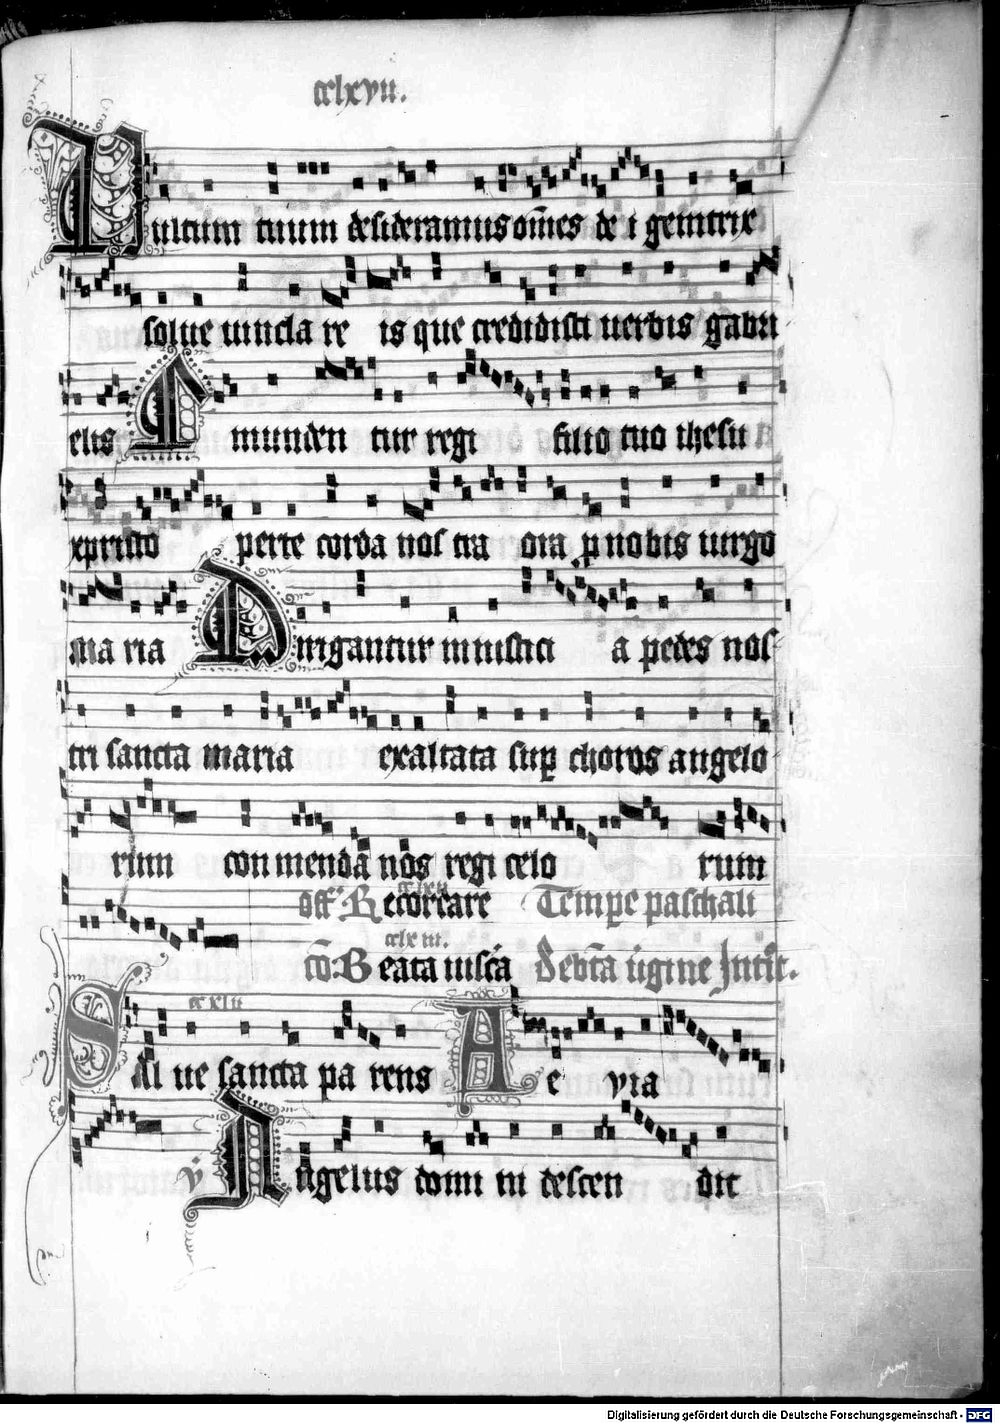 cclxvii.
Vultum tuum desideramus om̄es de i genitrix
solue uincla re is que credidisti uerbis gabri
elis: Emunden tur regi filio tuo ihesu
xpristo perte corda nos tra ora ꝑ nobis uirgo
ma ria Dirigantur in iusticia pedes nos
tri sancta maria exaltata suꝑ choros angelo
rum con menda nos regi celo rum
off. Recordare Tempe paschali
cclxiii.
co: Beata uiscā De bt̄a ūgine Intr̄.
ccxlii
Salue sancta pa rens A e via
v̇ Angelus domi ni descen dit
Digitalisierung gefördert durch die Deutsche Forschungsgemeinschaft - DFG